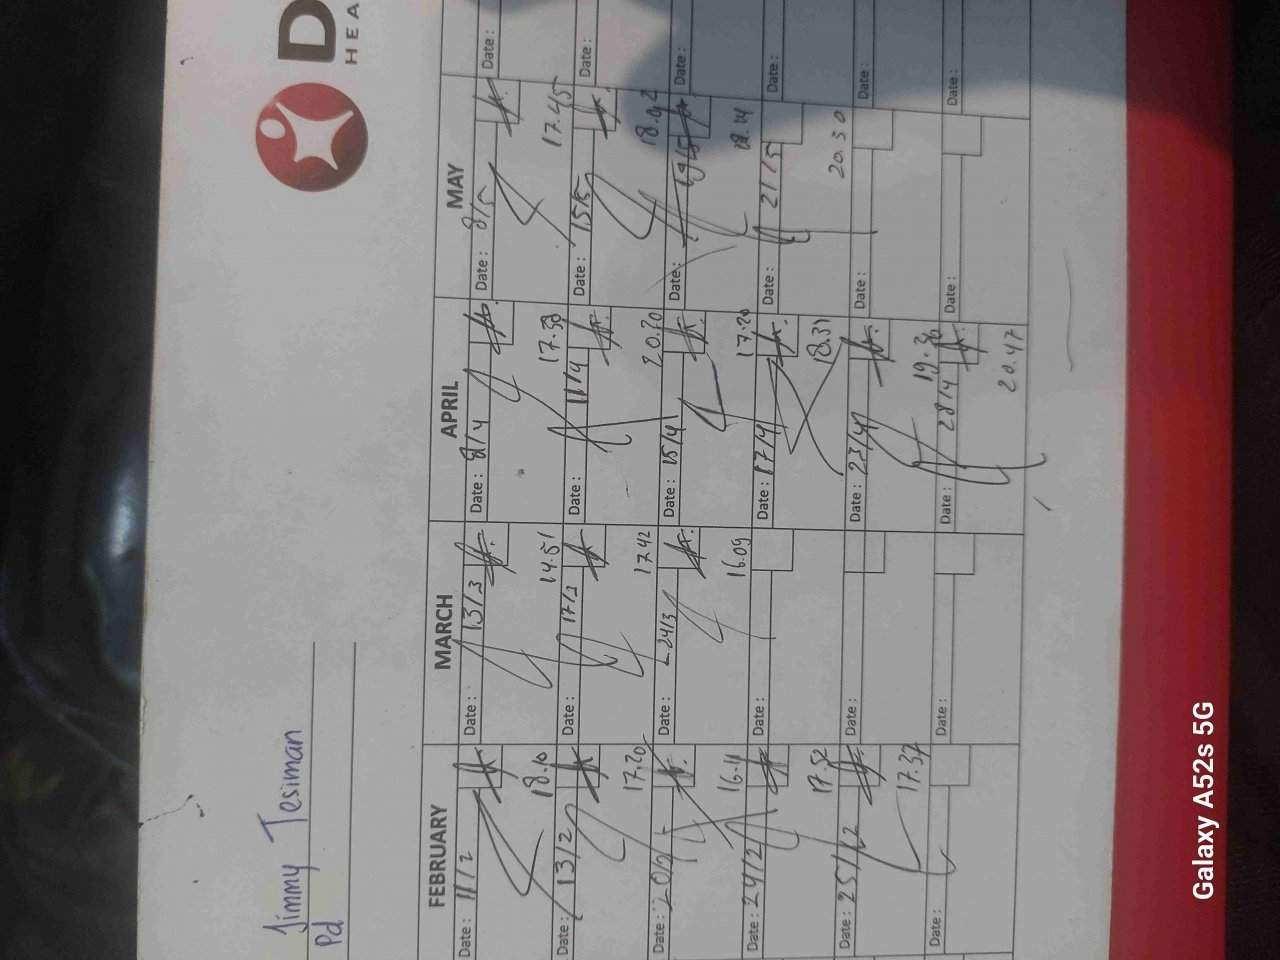 D
HEA
Jimmy Tesiman
Pd
FEBRUARY MARCH APRIL MAY
Date: 11/2 Date: 13/3 Date: 8/4 Date: 8/5 Date:
18.10 14.51 17.38 17.45
Date: 13/2 Date: 17/3 Date: 11/4 Date: 15/5 Date:
17.20 17.42 20.20 18.02
Date: 20/2 Date: 24/3 Date: 15/4 Date: 19/5 Date:
16.11 16.09 17.20 18.14
Date: 24/2 Date: Date: 17/4 Date: 21/5 Date:
17.52 18.31 20.30
Date: 25/2 Date: Date: 23/4 Date: Date:
17.37 19.36
Date: Date: Date: 28/4 Date: Date:
20.47
Galaxy A52s 5G